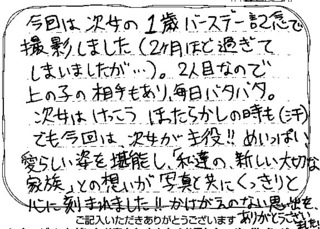 今回は次女の1歳バースデー記念で
撮影しました(2ヶ月ほど過ぎて
しまいましたが…)。2人目なので
上の子の相手もあり、毎日バタバタ。
次女はけっこうほったらかしの時も(汗)
でも今回は、次女が主役!!めいっぱい
愛らしい姿を堪能し、「私達の、新しい大切な
家族」との想いが写真と共にくっきりと
心に刻まれました!!かけがえのない思い出を、
ありがとうござい
ました!
ご記入いただきありがとうございます